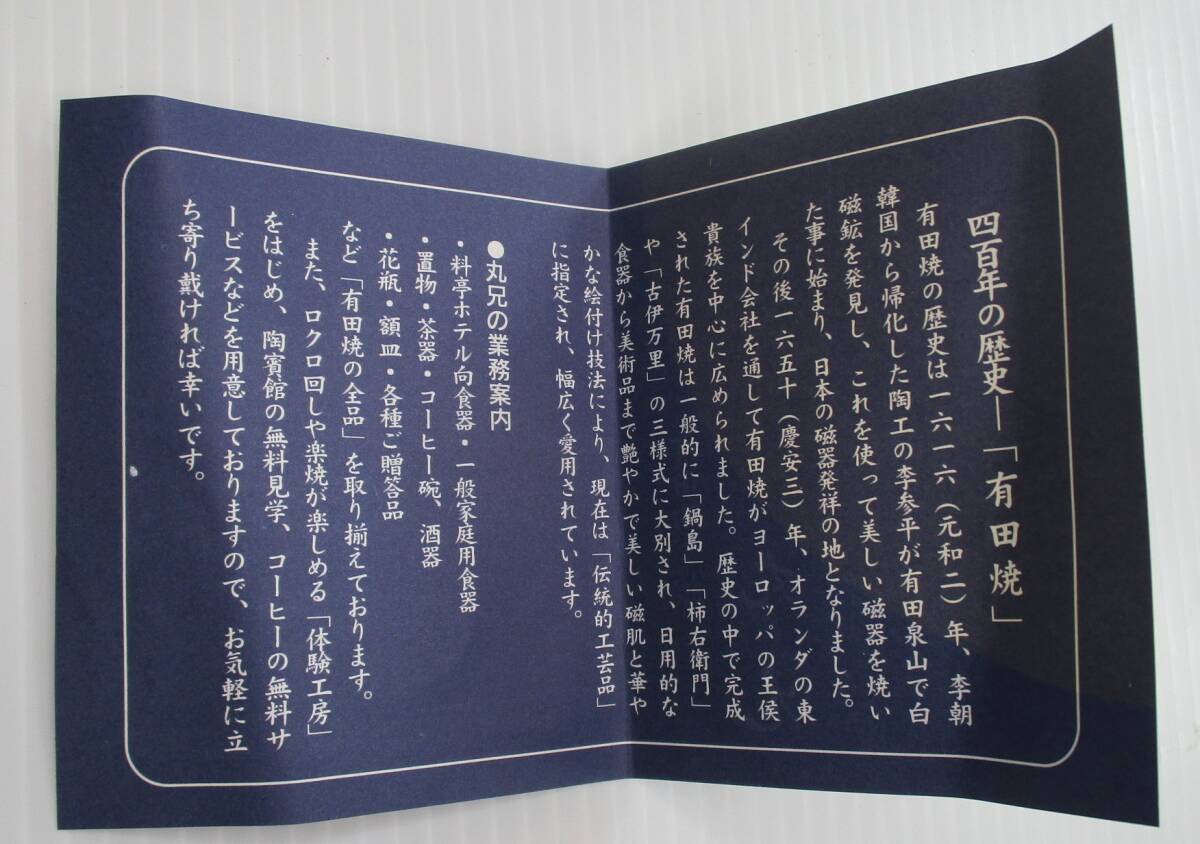 四百年の歴史―「有田焼」
有田焼の歴史は一六一六（元和二）年、李朝
韓国から帰化した陶工の李参平が有田泉山で白
磁鉱を発見し、これを使って美しい磁器を焼い
た事に始まり、日本の磁器発祥の地となりました。
その後一六五十（慶安三）年、オランダの東
インド会社を通して有田焼がヨーロッパの王侯
貴族を中心に広められました。歴史の中で完成
された有田焼は一般的に「鍋島」「柿右衛門」
や「古伊万里」の三様式に大別され、日用的な
食器から美術品まで艶やかで美しい磁肌と華や
かな絵付け技法により、現在は「伝統的工芸品」
に指定され、幅広く愛用されています。
●丸兄の業務案内
・料亭ホテル向食器・一般家庭用食器
・置物・茶器・コーヒー碗、酒器
・花瓶・額皿・各種ご贈答品
など「有田焼の全品」を取り揃えております。
また、ロクロ回しや楽焼が楽しめる「体験工房」
をはじめ、陶賓館の無料見学、コーヒーの無料サ
ービスなどを用意しておりますので、お気軽に立
ち寄り戴ければ幸いです。